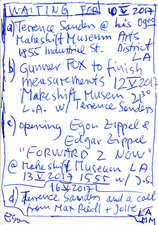 WAITING FOR 10 V 2017
a) Terence Sanders @ his ages
Makeshift Museum Arts
1855 Industrial St. District LA
b) Gunner FOX to finish
measurements 12 V 2017
Makeshift Museum
L.A. w/ Terence Sanders
c) opening Egon Zippel &
Edgar Zippel
"FORWARD 2 NOW"
@ Makeshift Museum LA
13 V 2017 1855 w/ J.S.
16 V 2017
d) Terence Sanders and a call
from Mat Riedl + Jolie
LA